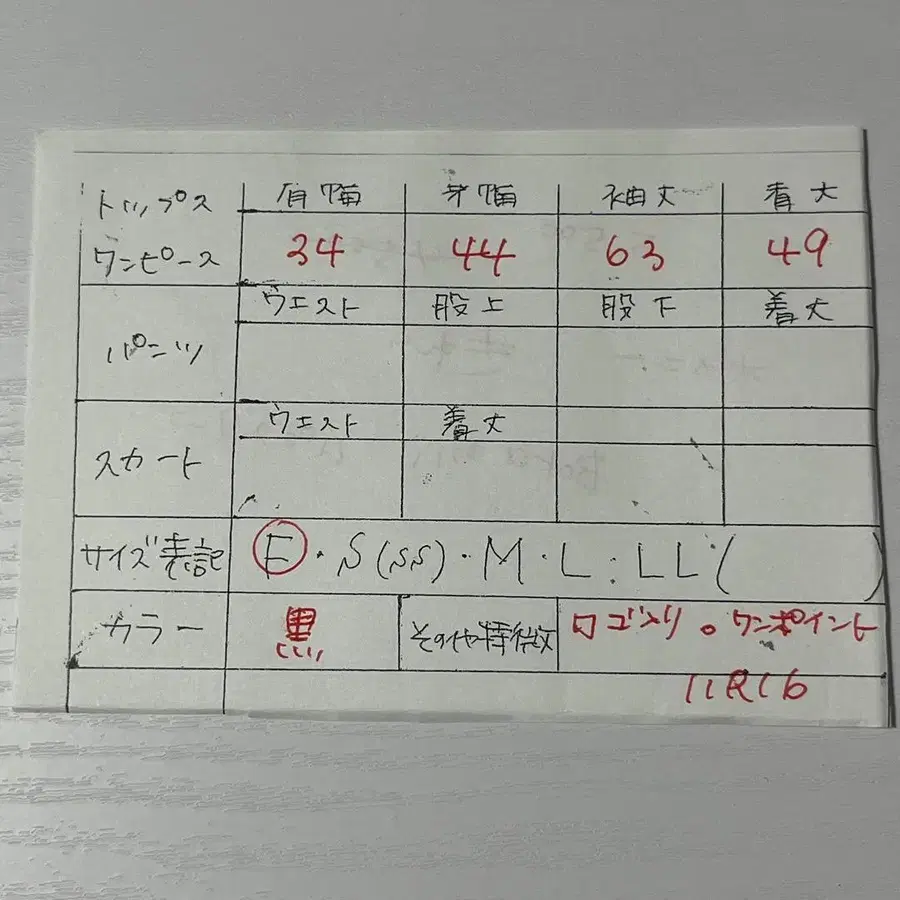 トップス 肩幅 身幅 袖丈 着丈
ワンピース 34 44 63 49
ウエスト 股上 股下 着丈
パンツ
ウエスト 着丈
スカート
サイズ表記 F・S(SS)・M・L・LL・( )
カラー 黒 その他特徴 ロゴ入り。ワンポイント
11R16